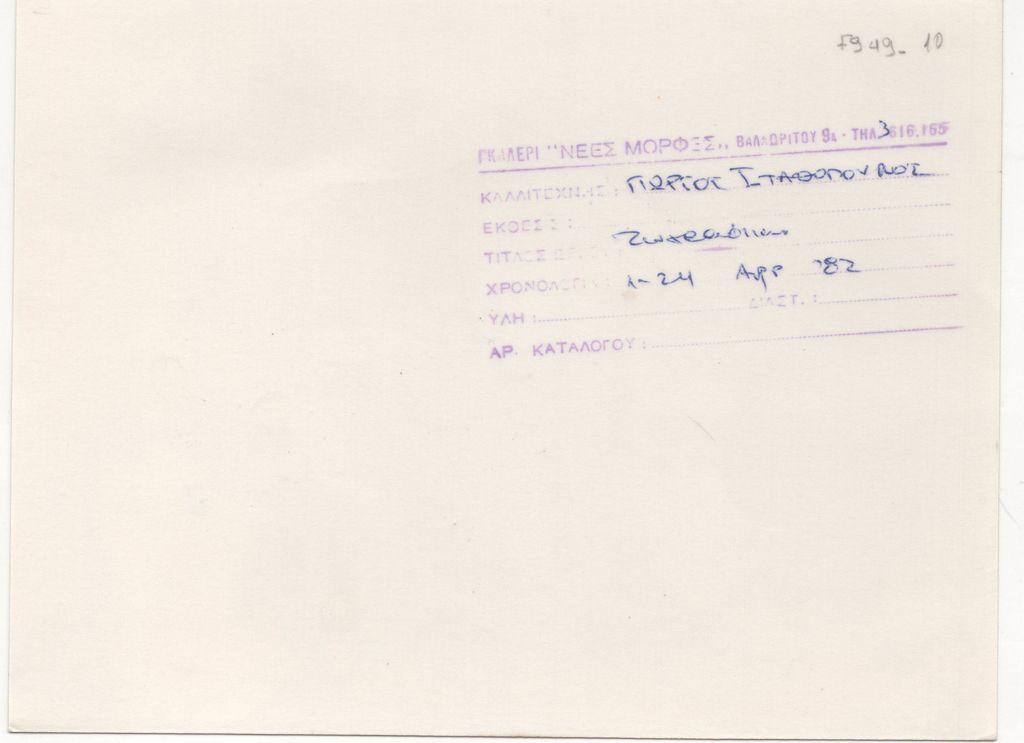 F949-10
ΓΚΑΛΕΡΙ "ΝΕΕΣ ΜΟΡΦΕΣ,, ΒΑΛΑΩΡΙΤΟΥ 9Α - ΤΗΛ 3616.165
ΚΑΛΛΙΤΕΧΝΗΣ : ΓΙΩΡΓΟΣ ΣΤΑΘΟΠΟΥΛΟΣ
ΕΚΘΕΣΙΣ :
ΤΙΤΛΟΣ
ΧΡΟΝΟΛΟΓΙΑ : 1-24 Απρ '82
ΥΛΗ : ΔΙΑΣΤ. :
ΑΡ. ΚΑΤΑΛΟΓΟΥ :